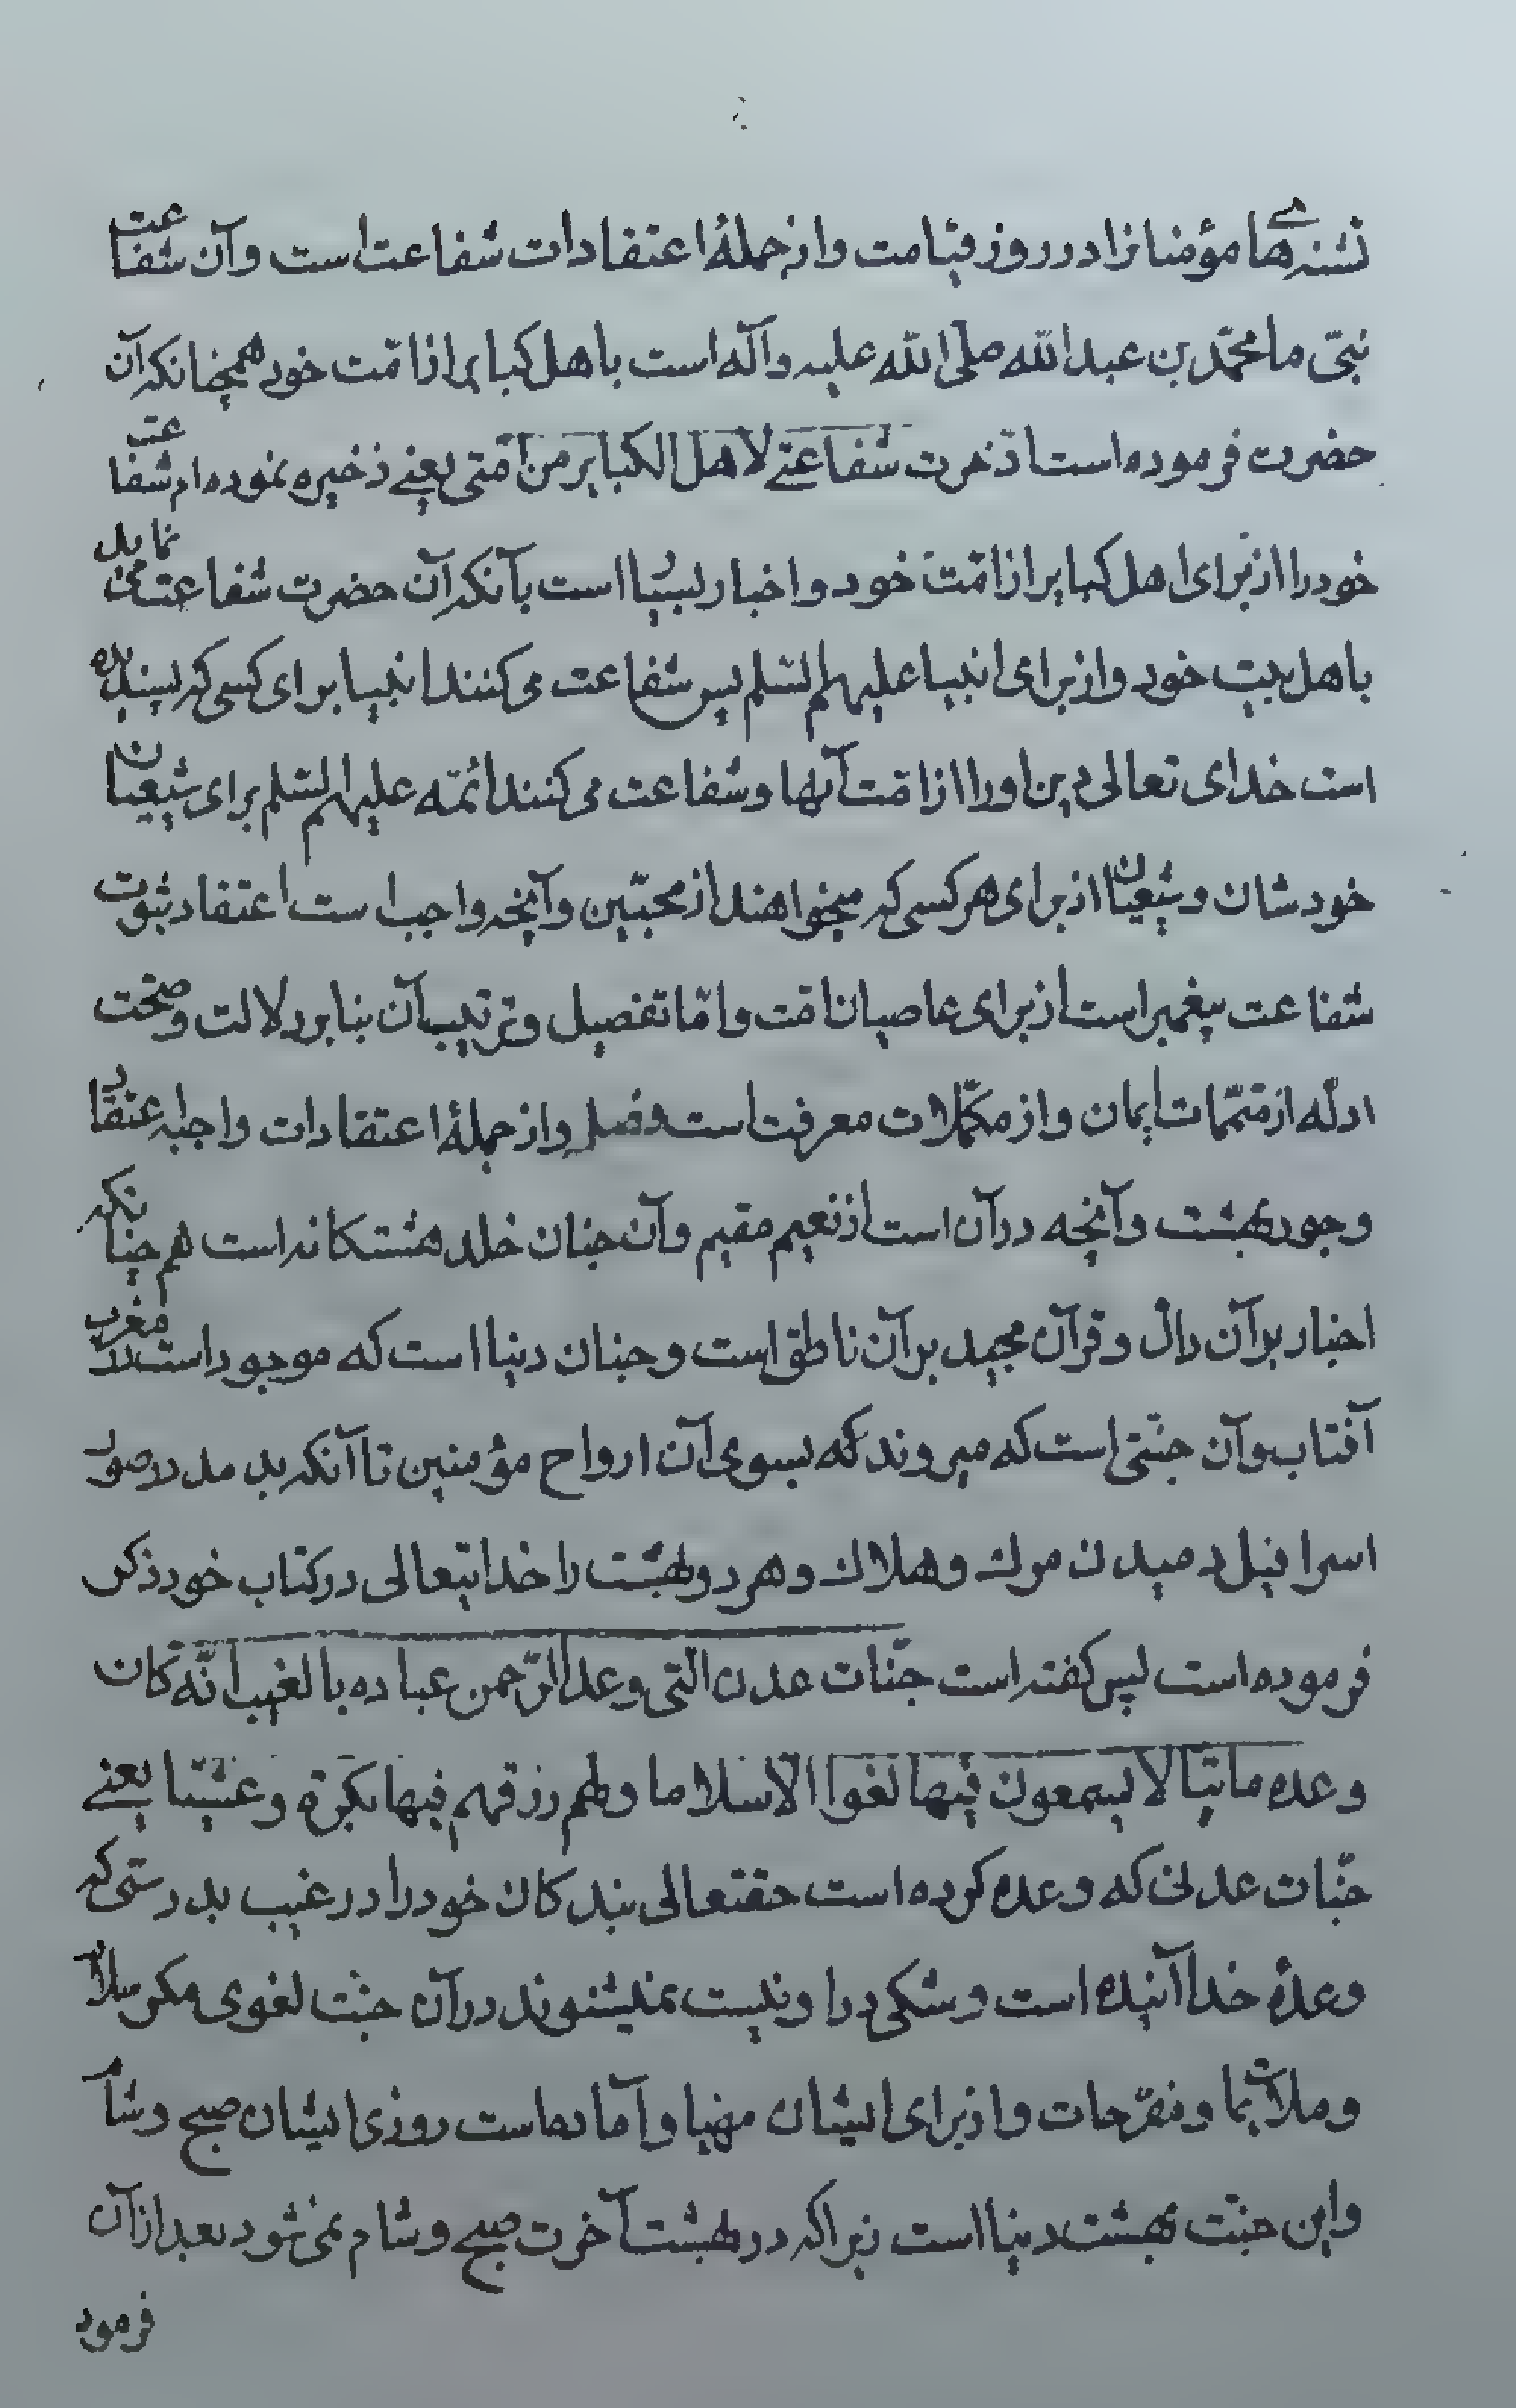 تشنه‌های مؤمنانرا در روز قیامت و از جملهٔ اعتقادات شفاعت است و آن شفاعت
نبیّ ما محمّد بن عبد الله صلّی الله علیه و آله است با هل کبایر از امّت خود همچنانکه آن
حضرت فرموده است ادّخرت شفاعتے لاهل الکبایر من امّتی یعنے ذخیره نموده‌ام شفاعت
خود را از برای اهل کبایر از امّت خود و اخبار بسیار است بآنکه آن حضرت شفاعت می نماید
با هل بیت خود و از برای انبیا علیهم السّلم پس شفاعت می کنند انبیا برای کسی که پسندیده
است خدای تعالی دین او را از امّت آنها و شفاعت می کنند ائمّه علیهم السّلم برای شیعیان
خودشان و شیعیان از برای هر کسی که میخواهند از محبّین و آنچه واجب است اعتقاد ثبوت
شفاعت پیغمبر است از برای عاصیان امّت و امّا تفصیل و ترتیب آن بنا بر دلالت و صحّت
ادلّه از متمّمات ایمان و از مکمّلات معرفت است فصل و از جملهٔ اعتقادات واجبه اعتقاد
وجود بهشت و آنچه در آن است از نعیم مقیم و آن جنان خلد هشتکانه است هم چنانکه
اخبار بر آن دالّ و قرآن مجید بر آن ناطق است و جنان دنیا است که موجود است در مغرب
آفتاب و آن جنّتی است که میروند که بسوی آن ارواح مؤمنین تا آنکه بدمد در صور
اسرافیل دمیدن مرك و هلاك و هر دو بهشت را خدایتعالی در کتاب خود ذکر
فرموده است پس کفته است جنّات عدن الّتی وعد الرّحمن عباده بالغیب انّه کان
وعده ماتیّا لا یسمعون فیها لغوا الّا سلاما و لهم رزقهم فیها بکرة و عشیّا یعنے
جنّات عدنی که وعده کرده است حقتعالی بندکان خود را در غیب بدرستی که
وعدهٔ خدا آینده است و شکی در او نیست نمیشنوند در آن جنّت لغوی مکر سلام
و ملایمات و مفرّحات و از برای ایشان مهیا و آماده است روزی ایشان صبح و شام
و این جنّت بهشت دنیا است زیرا که در بهشت آخرت صبح و شام نمی شود بعد از آن
فرمود